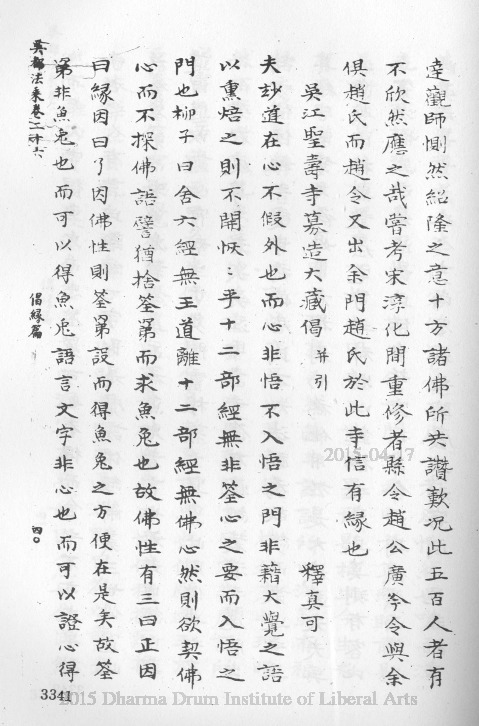 達觀師惻然紹隆之意十方諸佛所共讚歎况此五百人者有
不欣然應之哉嘗考宋淳化間重修者縣令趙公廣今令與余
俱趙氏而趙令又出余門趙氏於此寺信有緣也
吳江聖壽寺募造大藏偈 并引 釋真可
夫玅道在心不假外也而心非悟不入悟之門非藉大覺之語
以熏焙之則不開恢恢乎十二部經無非筌心之要而入悟之
門也柳子曰舍六經無王道離十二部經無佛心然則欲契佛
心而不探佛語譬猶捨筌罤而求魚兔也故佛性有三曰正因
曰緣因曰了因佛性則筌罤設而得魚兔之方便在是矣故筌
罤非魚兔也而可以得魚兔語言文字非心也而可以證心得
吳都法乘卷二十六 倡緣篇 四〇
3341
2015-04-17
2015 Dharma Drum Institute of Liberal Arts